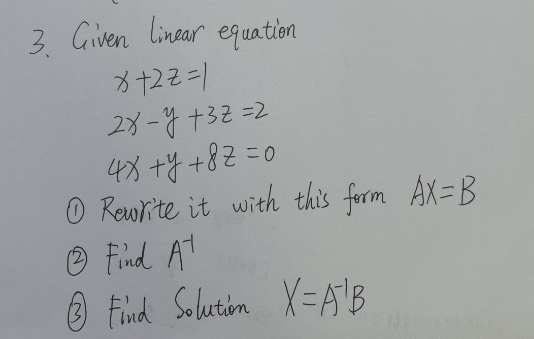 3. Given linear equation
x+2z=1
2x-y+3z=2
4x+y+8z=0
① Rewrite it with this form AX=B
② Find A⁻¹
③ Find Solution X=A⁻¹B